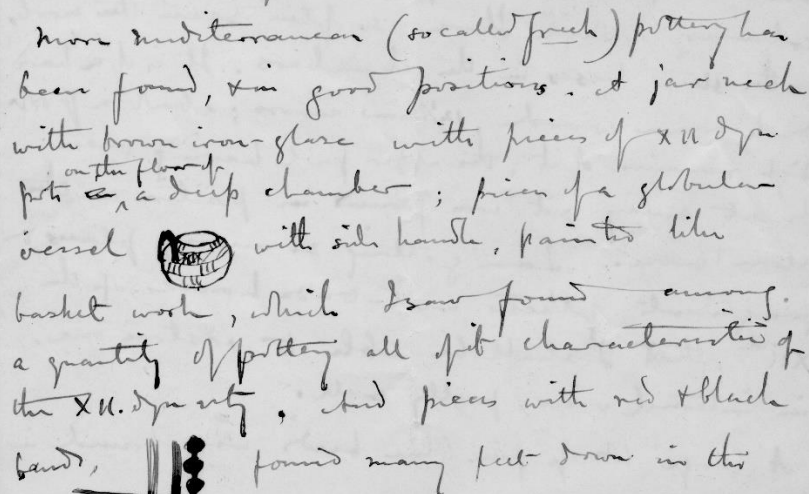 More mediterranean (so called Greek) pottery has
been found, & in good positions. A jar neck
with brown iron-glaze with pieces of XII dyn
on the floor of
pots a deep chamber ; pieces of a globular
vessel with side handle, painted like
basket work, which I saw found among
a quantity of pottery all of it characteristic of
the XII. dyn. And pieces with red & black
bands, found many feet down in the